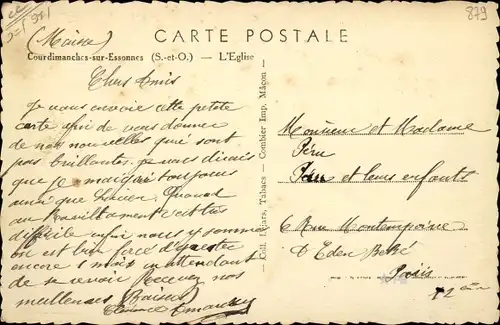 879
(Maisse)
CARTE POSTALE
Courdimanche-sur-Essonnes (S.-et-O.) — L'Eglise
Chers Amis
Je vous envoie cette petite
carte afin de vous donner
de nos nouvelles qui sont
pas brillantes. Je vous dirais
que je maigri toujours
ainsi que
au Ravitaillement c'est très
difficile enfin nous y sommes
on est bien forcé d'y rester
encore 1 mois en attendant
de se revoir Recevez nos
meilleurs Baisers
Coll. Tabacs - Combier Imp. Mâcon
Monsieur et Madame
Péru
et leurs enfants
6 Rue
Paris
12 ème